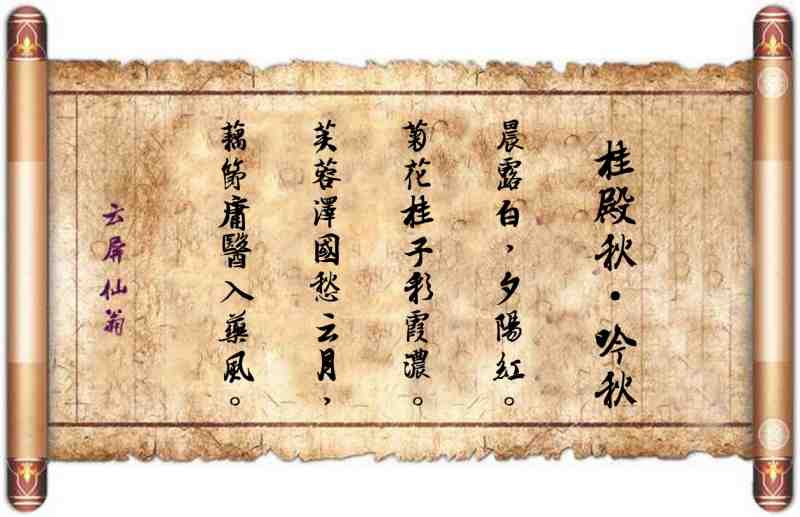 桂殿秋·吟秋
晨露白，夕陽紅。
菊花桂子彩霞濃。
芙蓉澤國愁云月，
藕節庸醫入藥風。
云屏仙翁